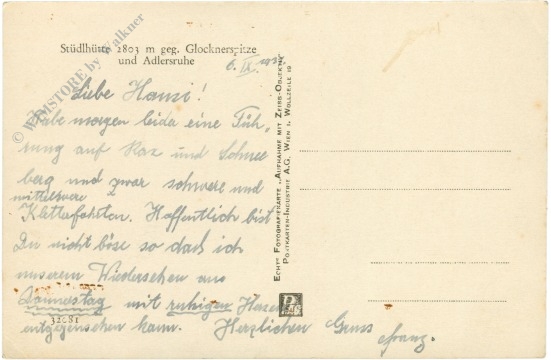 Stüdlhütte 2803 m geg. Glocknerspitze
und Adlersruhe
6. IX.
Liebe Hansi!
Habe morgen leida eine Füh-
rung auf Rax und Schnee
berg und zwar schwere und
mittelswere
Kletterfahrten. Hoffentlich bist
Du nicht böse so dass ich
unserem Wiedersehen am
Donnerstag mit ruhigen Herzen
entgegensehen kann. Herzlichen Gruss
Franz.
32681
ECHTE FOTOGRAFIEKARTE „AUFNAHME MIT ZEISS-OBJEKTIV"
POSTKARTEN-INDUSTRIE A.G., WIEN I. WOLLZEILE 10
© WIMSTORE by Walkner